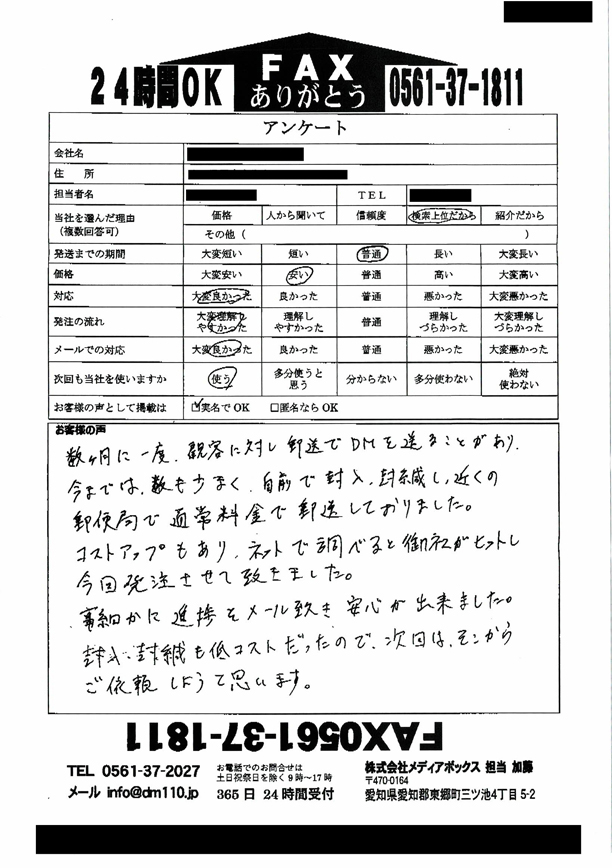 24時間OK
FAX
ありがとう
0561-37-1811
アンケート
会社名
住 所
担当者名 TEL
当社を選んだ理由（複数回答可） 価格 人から聞いて 信頼度 検索上位だから 紹介だから
その他（ ）
発送までの期間 大変短い 短い 普通 長い 大変長い
価格 大変安い 安い 普通 高い 大変高い
対応 大変良かった 良かった 普通 悪かった 大変悪かった
発注の流れ 大変理解しやすかった 理解しやすかった 普通 理解しづらかった 大変理解しづらかった
メールでの対応 大変良かった 良かった 普通 悪かった 大変悪かった
次回も当社を使いますか 使う 多分使うと思う 分からない 多分使わない 絶対使わない
お客様の声として掲載は ☑実名でOK □匿名ならOK
お客様の声
数ヶ月に一度、顧客に対し郵送でDMを送ることがあり、
今までは、数も少なく、自前で封入、封緘し、近くの
郵便局で通常料金で郵送しておりました。
コストアップもあり、ネットで調べると御社がヒットし
今回発注させて致きました。
事細かに進捗をメール致き安心が出来ました。
封入、封緘も低コストだったので、次回は、そこから
ご依頼しようて思います。
FAX0561-37-1811
TEL 0561-37-2027
メール info@dm110.jp
お電話でのお問合せは
土日祝祭日を除く9時〜17時
365日24時間受付
株式会社メディアボックス 担当 加藤
〒470-0164
愛知県愛知郡東郷町三ツ池4丁目5-2